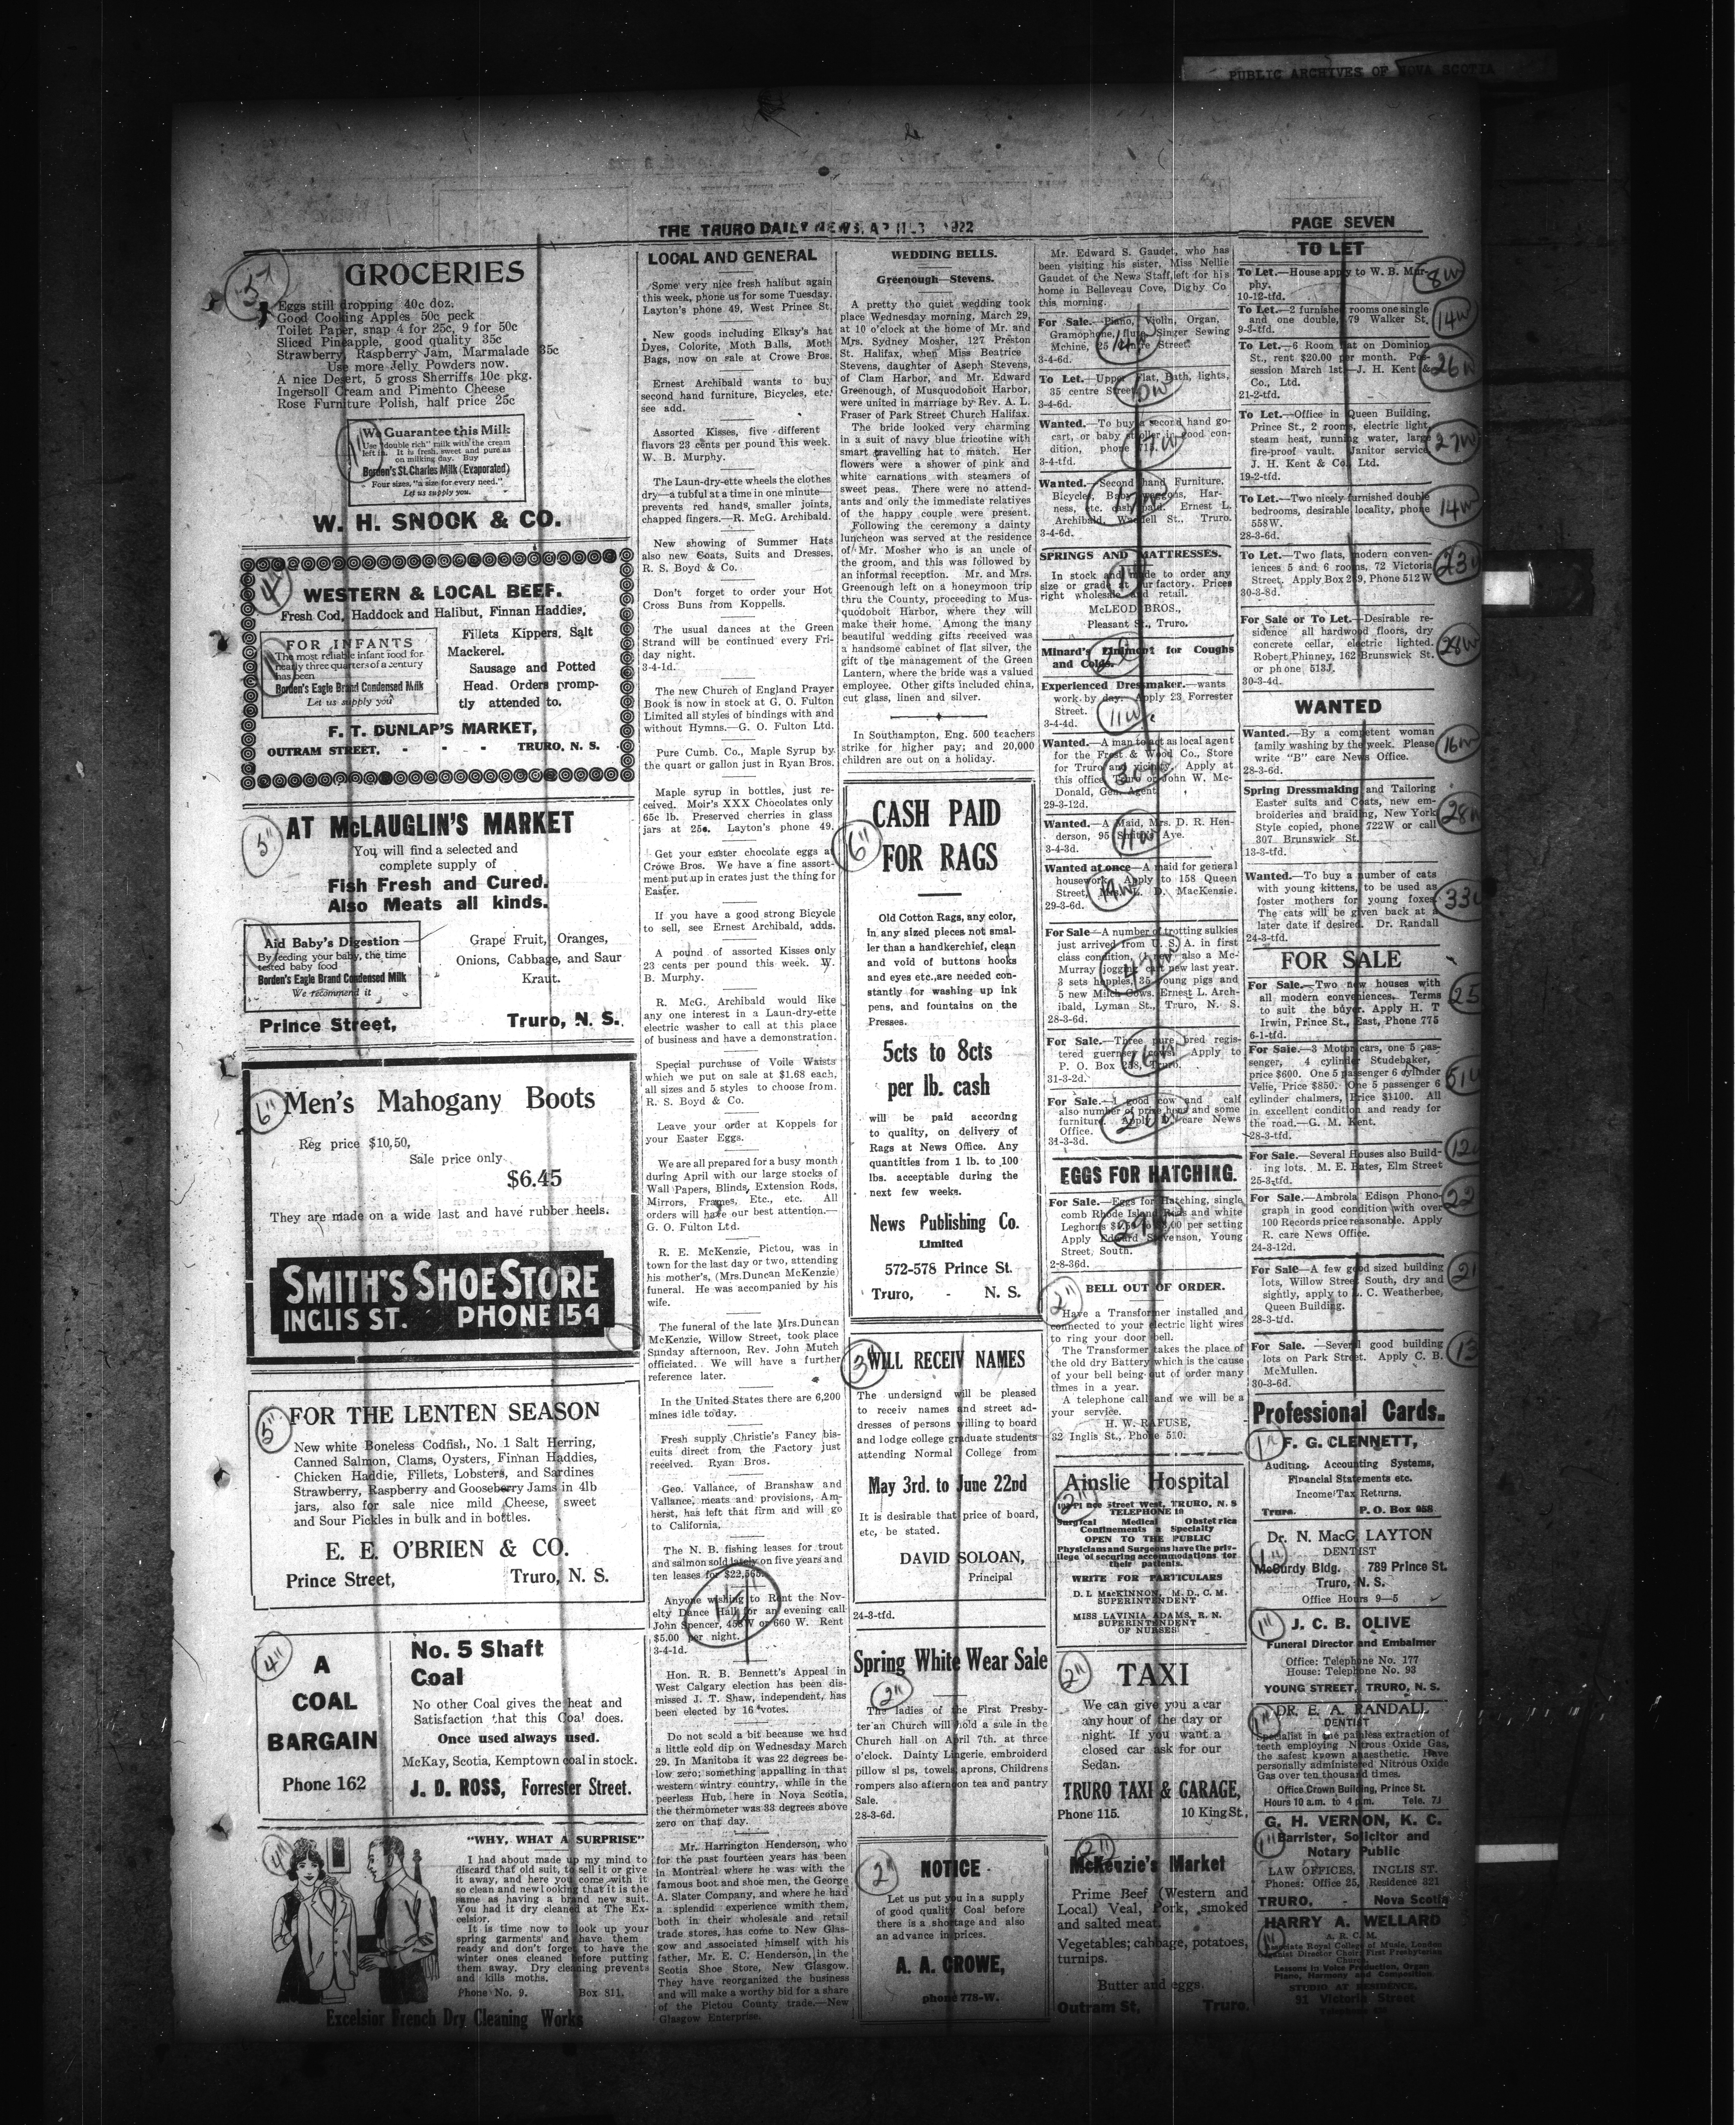 PUBLIC ARCHIVES OF NOVA SCOTIA
THE TRURO DAILY NEWS, 1922
PAGE SEVEN
5"
GROCERIES
Eggs still dropping 40c doz.
Good Cooking Apples 50c peck
Toilet Paper, snap 4 for 25c, 9 for 50c
Sliced Pineapple, good quality 35c
Strawberry, Raspberry Jam, Marmalade 35c
Use more Jelly Powders now.
A nice Desert, 5 gross Sherriffs 10c pkg.
Ingersoll Cream and Pimento Cheese
Rose Furniture Polish, half price 25c
We Guarantee this Milk
Use "double rich" milk with the cream
left in. It is fresh, sweet and pure as
on milking day. Buy
Borden's St. Charles Milk (Evaporated)
Four sizes, "a size for every need."
Let us supply you.
W. H. SNOOK & CO.
4"
WESTERN & LOCAL BEEF.
Fresh Cod, Haddock and Halibut, Finnan Haddies,
FOR INFANTS
The most reliable infant food for
nearly three quarters of a century
has been
Borden's Eagle Brand Condensed Milk
Let us supply you
Fillets Kippers, Salt
Mackerel.
Sausage and Potted
Head. Orders promp-
tly attended to.
F. T. DUNLAP'S MARKET,
OUTRAM STREET, - - - TRURO, N. S.
5"
AT McLAUGLIN'S MARKET
You will find a selected and
complete supply of
Fish Fresh and Cured.
Also Meats all kinds.
Aid Baby's Digestion
By feeding your baby, the time
tested baby food
Borden's Eagle Brand Condensed Milk
We recommend it
Grape Fruit, Oranges,
Onions, Cabbage, and Saur
Kraut.
Prince Street, Truro, N. S.
6"
Men's Mahogany Boots
Reg price $10,50,
Sale price only
$6.45
They are made on a wide last and have rubber heels.
SMITH'S SHOE STORE
INGLIS ST. PHONE 154
5"
FOR THE LENTEN SEASON
New white Boneless Codfish, No. 1 Salt Herring,
Canned Salmon, Clams, Oysters, Finnan Haddies,
Chicken Haddie, Fillets, Lobsters, and Sardines
Strawberry, Raspberry and Gooseberry Jams in 4lb
jars, also for sale nice mild Cheese, sweet
and Sour Pickles in bulk and in bottles.
E. E. O'BRIEN & CO.
Prince Street, Truro, N. S.
4"
A
COAL
BARGAIN
Phone 162
No. 5 Shaft
Coal
No other Coal gives the heat and
Satisfaction that this Coal does.
Once used always used.
McKay, Scotia, Kemptown coal in stock.
J. D. ROSS, Forrester Street.
4"
"WHY, WHAT A SURPRISE"
I had about made up my mind to
discard that old suit, to sell it or give
it away, and here you come with it
so clean and new looking that it is the
same as having a brand new suit.
You had it dry cleaned at The Ex-
celsior.
It is time now to look up your
spring garments and have them
ready and don't forget to have the
winter ones cleaned before putting
them away. Dry cleaning prevents
and kills moths.
Phone No. 9. Box 811.
Excelsior French Dry Cleaning Works
LOCAL AND GENERAL
Some very nice fresh halibut again
this week, phone us for some Tuesday.
Layton's phone 49, West Prince St.
New goods including Elkay's hat
Dyes, Colorite, Moth Balls, Moth
Bags, now on sale at Crowe Bros.
Ernest Archibald wants to buy
second hand furniture, Bicycles, etc.
see add.
Assorted Kisses, five different
flavors 23 cents per pound this week.
W. B. Murphy.
The Laun-dry-ette wheels the clothes
dry—a tubful at a time in one minute—
prevents red hands, smaller joints,
chapped fingers.—R. McG. Archibald.
New showing of Summer Hats
also new Coats, Suits and Dresses.
R. S. Boyd & Co.
Don't forget to order your Hot
Cross Buns from Koppells.
The usual dances at the Green
Strand will be continued every Fri-
day night.
3-4-1d.
The new Church of England Prayer
Book is now in stock at G. O. Fulton
Limited all styles of bindings with and
without Hymns.—G. O. Fulton Ltd.
Pure Cumb. Co., Maple Syrup by
the quart or gallon just in Ryan Bros.
Maple syrup in bottles, just re-
ceived. Moir's XXX Chocolates only
65c lb. Preserved cherries in glass
jars at 25c. Layton's phone 49.
Get your easter chocolate eggs at
Crowe Bros. We have a fine assort-
ment put up in crates just the thing for
Easter.
If you have a good strong Bicycle
to sell, see Ernest Archibald, adds.
A pound of assorted Kisses only
23 cents per pound this week. W.
B. Murphy.
R. McG. Archibald would like
any one interest in a Laun-dry-ette
electric washer to call at this place
of business and have a demonstration.
Special purchase of Voile Waists
which we put on sale at $1.68 each,
all sizes and 5 styles to choose from.
R. S. Boyd & Co.
Leave your order at Koppels for
your Easter Eggs.
We are all prepared for a busy month
during April with our large stocks of
Wall Papers, Blinds, Extension Rods,
Mirrors, Frames, Etc., etc. All
orders will have our best attention.—
G. O. Fulton Ltd.
R. E. McKenzie, Pictou, was in
town for the last day or two, attending
his mother's, (Mrs. Duncan McKenzie)
funeral. He was accompanied by his
wife.
The funeral of the late Mrs. Duncan
McKenzie, Willow Street, took place
Sunday afternoon, Rev. John Mutch
officiated. We will have a further
reference later.
In the United States there are 6,200
mines idle today.
Fresh supply Christie's Fancy bis-
cuits direct from the Factory just
received. Ryan Bros.
Geo. Vallance, of Branshaw and
Vallance, meats and provisions, Am-
herst, has left that firm and will go
to California.
The N. B. fishing leases for trout
and salmon sold lately on five years and
ten leases for $22,565.
Anyone wishing to Rent the Nov-
elty Dance Hall for an evening call
John Spencer, 458W or 660 W. Rent
$5.00 per night.
3-4-1d.
Hon. R. B. Bennett's Appeal in
West Calgary election has been dis-
missed J. T. Shaw, independent, has
been elected by 16 votes.
Do not scold a bit because we had
a little cold dip on Wednesday March
29. In Manitoba it was 22 degrees be-
low zero; something appalling in that
western wintry country, while in the
peerless Hub, here in Nova Scotia,
the thermometer was 33 degrees above
zero on that day.
Mr. Harrington Henderson, who
for the past fourteen years has been
in Montreal where he was with the
famous boot and shoe men, the George
A. Slater Company, and where he had
a splendid experience wmith them,
both in their wholesale and retail
trade stores, has come to New Glas-
gow and associated himself with his
father, Mr. E. C. Henderson, in the
Scotia Shoe Store, New Glasgow.
They have reorganized the business
and will make a worthy bid for a share
of the Pictou County trade.—New
Glasgow Enterprise.
WEDDING BELLS.
Greenough—Stevens.
A pretty tho quiet wedding took
place Wednesday morning, March 29,
at 10 o'clock at the home of Mr. and
Mrs. Sydney Mosher, 127 Preston
St. Halifax, when Miss Beatrice
Stevens, daughter of Aseph Stevens,
of Clam Harbor, and Mr. Edward
Greenough, of Musquodoboit Harbor,
were united in marriage by Rev. A. L.
Fraser of Park Street Church Halifax.
The bride looked very charming
in a suit of navy blue tricotine with
smart travelling hat to match. Her
flowers were a shower of pink and
white carnations with steamers of
sweet peas. There were no attend-
ants and only the immediate relatives
of the happy couple were present.
Following the ceremony a dainty
luncheon was served at the residence
of Mr. Mosher who is an uncle of
the groom, and this was followed by
an informal reception. Mr. and Mrs.
Greenough left on a honeymoon trip
thru the County, proceeding to Mus-
quodoboit Harbor, where they will
make their home. Among the many
beautiful wedding gifts received was
a handsome cabinet of flat silver, the
gift of the management of the Green
Lantern, where the bride was a valued
employee. Other gifts included china,
cut glass, linen and silver.
In Southampton, Eng. 500 teachers
strike for higher pay; and 20,000
children are out on a holiday.
6"
CASH PAID
FOR RAGS
Old Cotton Rags, any color,
in any sized pieces not smal-
ler than a handkerchief, clean
and void of buttons hooks
and eyes etc., are needed con-
stantly for washing up ink
pens, and fountains on the
Presses.
5cts to 8cts
per lb. cash
will be paid accordng
to quality, on delivery of
Rags at News Office. Any
quantities from 1 lb. to 100
lbs. acceptable during the
next few weeks.
News Publishing Co.
Limited
572-578 Prince St.
Truro, - N. S.
3"
WILL RECEIV NAMES
The undersignd will be pleased
to receiv names and street ad-
dresses of persons willing to board
and lodge college graduate students
attending Normal College from
May 3rd. to June 22nd
It is desirable that price of board,
etc, be stated.
DAVID SOLOAN,
Principal
24-3-tfd.
Spring White Wear Sale
2"
The ladies of the First Presby-
terian Church will hold a sale in the
Church hall on April 7th. at three
o'clock. Dainty Lingerie, embroiderd
pillow slips, towels, aprons, Childrens
rompers also afternoon tea and pantry
Sale.
28-3-6d.
2"
NOTICE
Let us put you in a supply
of good quality Coal before
there is a shortage and also
an advance in prices.
A. A. CROWE,
phone 778-W.
Mr. Edward S. Gaudet, who has
been visiting his sister, Miss Nellie
Gaudet of the News Staff, left for his
home in Belleveau Cove, Digby Co
this morning.
For Sale.—Piano, Violin, Organ,
Gramophone, flute, Singer Sewing
Mchine, 25 Street.
3-4-6d.
To Let.—Upper Flat, Bath, lights,
35 centre Street.
3-4-6d.
Wanted.—To buy a second hand go-
cart, or baby stroller in good con-
dition, phone
3-4-tfd.
Wanted.—Second hand Furniture,
Bicycles, Baby waggons, Har-
ness, etc. cash paid. Ernest L.
Archibald, Waddell St., Truro.
3-4-6d.
SPRINGS AND MATTRESSES.
In stock and made to order any
size or grade at our factory. Prices
right wholesale and retail.
McLEOD BROS.,
Pleasant St., Truro.
Minard's Liniment for Coughs
and Colds.
Experienced Dressmaker.—wants
work by day. Apply 23 Forrester
Street.
3-4-4d.
11w
Wanted.—A man to act as local agent
for the Frost & Wood Co., Store
for Truro and vicinity. Apply at
this office, Truro or John W. Mc-
Donald, Gen. Agent.
29-3-12d.
Wanted.—A Maid, Mrs. D. R. Hen-
derson, 95 Smith's Ave.
3-4-3d.
Wanted at once—A maid for general
housework. Apply to 158 Queen
Street, D. MacKenzie.
29-3-6d.
For Sale—A number of trotting sulkies
just arrived from U. S. A. in first
class condition, also a Mc-
Murray jogging cart new last year.
3 sets hopples, 35 young pigs and
5 new Milch Cows. Ernest L. Arch-
ibald, Lyman St., Truro, N. S.
28-3-6d.
For Sale.—Three pure bred regis-
tered guernsey cows. Apply to
P. O. Box 238, Truro.
31-3-2d.
For Sale.—1 good cow and calf
also number of prize hens and some
furniture. Apply care News
Office.
31-3-3d.
EGGS FOR HATCHING.
For Sale.—Eggs for Hatching, single
comb Rhode Island Reds and white
Leghorns per setting
Apply Edward Stevenson, Young
Street, South.
2-8-36d.
2"
BELL OUT OF ORDER.
Have a Transformer installed and
connected to your electric light wires
to ring your door bell.
The Transformer takes the place of
the old dry Battery which is the cause
of your bell being out of order many
times in a year.
A telephone call and we will be a
your service.
H. W. RAFUSE,
32 Inglis St., Phone 510.
Ainslie Hospital
2"
Street West, TRURO, N. S
TELEPHONE 10
Surgical Medical Obstetrics
Confinements a Specialty
OPEN TO THE PUBLIC
Physicians and Surgeons have the priv-
ilege of securing accommodations for
their patients.
WRITE FOR PARTICULARS
D. L MacKINNON, M. D., C. M.
SUPERINTENDENT
MISS LAVINIA ADAMS, R. N.
SUPERINTENDENT
OF NURSES
2"
TAXI
We can give you a car
any hour of the day or
night. If you want a
closed car ask for our
Sedan.
TRURO TAXI & GARAGE,
Phone 115. 10 King St.,
2"
McKenzie's Market
Prime Beef (Western and
Local) Veal, Pork, smoked
and salted meat.
Vegetables; cabbage, potatoes,
turnips.
Butter and eggs.
Outram St, Truro.
TO LET
To Let.—House apply to W. B. Mur-
phy.
10-12-tfd.
8w
To Let.—2 furnished rooms one single
and one double, 79 Walker St.
9-3-tfd.
14w
To Let.—6 Room flat on Dominion
St., rent $20.00 per month. Pos-
session March 1st.—J. H. Kent &
Co., Ltd.
21-2-tfd.
26w
To Let.—Office in Queen Building,
Prince St., 2 rooms, electric light,
steam heat, running water, large
fire-proof vault. Janitor service,
J. H. Kent & Co., Ltd.
19-2-tfd.
27w
To Let.—Two nicely furnished double
bedrooms, desirable locality, phone
558W.
28-3-6d.
14w
To Let.—Two flats, modern conven-
iences 5 and 6 rooms, 72 Victoria
Street. Apply Box 289, Phone 512W
30-3-8d.
For Sale or To Let.—Desirable re-
sidence all hardwood floors, dry
concrete cellar, electric lighted.
Robert Phinney, 162 Brunswick St.
or phone 513J.
30-3-4d.
28w
WANTED
Wanted.—By a competent woman
family washing by the week. Please
write "B" care News Office.
28-3-6d.
16w
Spring Dressmaking and Tailoring
Easter suits and Coats, new em-
broideries and braiding, New York
Style copied, phone 722W or call
307 Brunswick St.
13-3-tfd.
28w
Wanted.—To buy a number of cats
with young kittens, to be used as
foster mothers for young foxes.
The cats will be given back at a
later date if desired. Dr. Randall
24-3-tfd.
FOR SALE
For Sale.—Two new houses with
all modern conveniences. Terms
to suit the buyer. Apply H. T
Irwin, Prince St., East, Phone 775
6-1-tfd.
For Sale.—3 Motor cars, one 5 pas-
senger, 4 cylinder Studebaker,
price $600. One 5 passenger 6 cylinder
Velie, Price $850. One 5 passenger 6
cylinder chalmers, Price $1100. All
in excellent condition and ready for
the road.—G. M. Kent.
28-3-tfd.
For Sale.—Several Houses also Build-
ing lots. M. E. Bates, Elm Street
25-3-tfd.
For Sale.—Ambrola Edison Phono-
graph in good condition with over
100 Records price reasonable. Apply
R. care News Office.
24-3-12d.
For Sale—A few good sized building
lots, Willow Street South, dry and
sightly, apply to L. C. Weatherbee,
Queen Building.
28-3-tfd.
For Sale. —Several good building
lots on Park Street. Apply C. B.
McMullen.
30-3-6d.
Professional Cards.
1"
F. G. CLENNETT,
Auditing, Accounting Systems,
Financial Statements etc.
Income Tax Returns.
Truro. P. O. Box 958
Dr. N. MacG. LAYTON
DENTIST
1"
McCurdy Bldg. 789 Prince St.
Truro, N. S.
Office Hours 9—5
1"
J. C. B. OLIVE
Funeral Director and Embalmer
Office: Telephone No. 177
House: Telephone No. 93
YOUNG STREET, TRURO, N. S.
DR. E. A. RANDALL
DENTIST
1"
Specialist in the painless extraction of
teeth employing Nitrous Oxide Gas,
the safest known anaesthetic. Have
personally administered Nitrous Oxide
Gas over ten thousand times.
Office Crown Building, Prince St.
Hours 10 a.m. to 4 p.m. Tele. 7J
G. H. VERNON, K. C.
1"
Barrister, Solicitor and
Notary Public
LAW OFFICES, INGLIS ST.
Phones: Office 25, Residence 321
TRURO, - Nova Scotia
HARRY A. WELLARD
A. R. C. M.
Associate Royal College of Music, London
Organist Director Choir, First Presbyterian
Church
Lessons in Voice Production, Organ
Piano, Harmony and Composition
STUDIO AT RESIDENCE,
91 Victoria Street